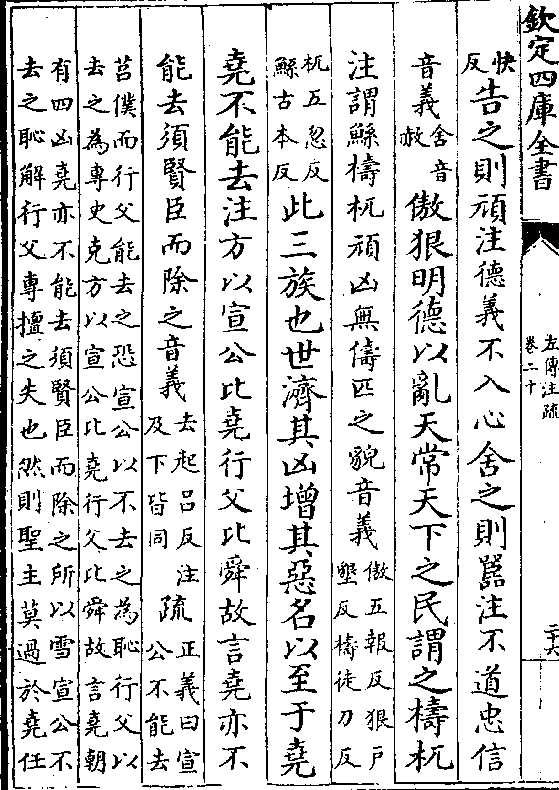 欽定四庫全書
左傳注疏
卷二十
二十六
快
反
告之則頑注德義不入心舍之則嚚注不道忠信
音義
舍音
赦
傲狠明德以亂天常天下之民謂之檮杌
注謂鯀檮杌頑凶無儔匹之貌音義
傲五報反狠戶
墾反檮徒刀反
杌五忽反
鯀古本反
此三族也世濟其凶增其惡名以至于堯
堯不能去注方以宣公比堯行父比舜故言堯亦不
能去須賢臣而除之音義
去起呂反注
及下皆同
疏
正義曰宣
公不能去
莒僕而行父能去之恐宣公以不去之為恥行父以
去之為專史克方以宣公比堯行父比舜故言堯朝
有四凶堯亦不能去須賢臣而除之所以雪宣公不
去之恥解行父專擅之失也然則聖主莫過於堯任